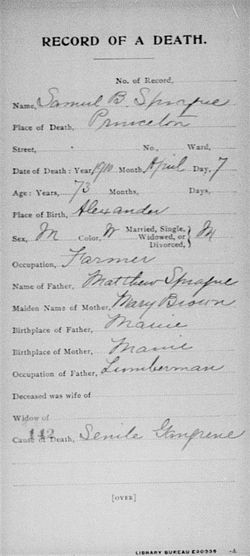 RECORD OF A DEATH.
No. of Record,
Name, Samuel B. Sprague
Place of Death, Princeton
Street, No., Ward,
Date of Death: Year, 1910 Month, April Day, 7
Age: Years, 73 Months, Days,
Place of Birth, Alexander
Sex, M Color, W Married, Single, Widowed, or Divorced, } M
Occupation, Farmer
Name of Father, Matthew Sprague
Maiden Name of Mother, Mary Brown
Birthplace of Father, Maine
Birthplace of Mother, Maine
Occupation of Father, Lumberman
Deceased was wife of
Widow of
142
Cause of Death, Senile Gangrene
[OVER]
LIBRARY BUREAU